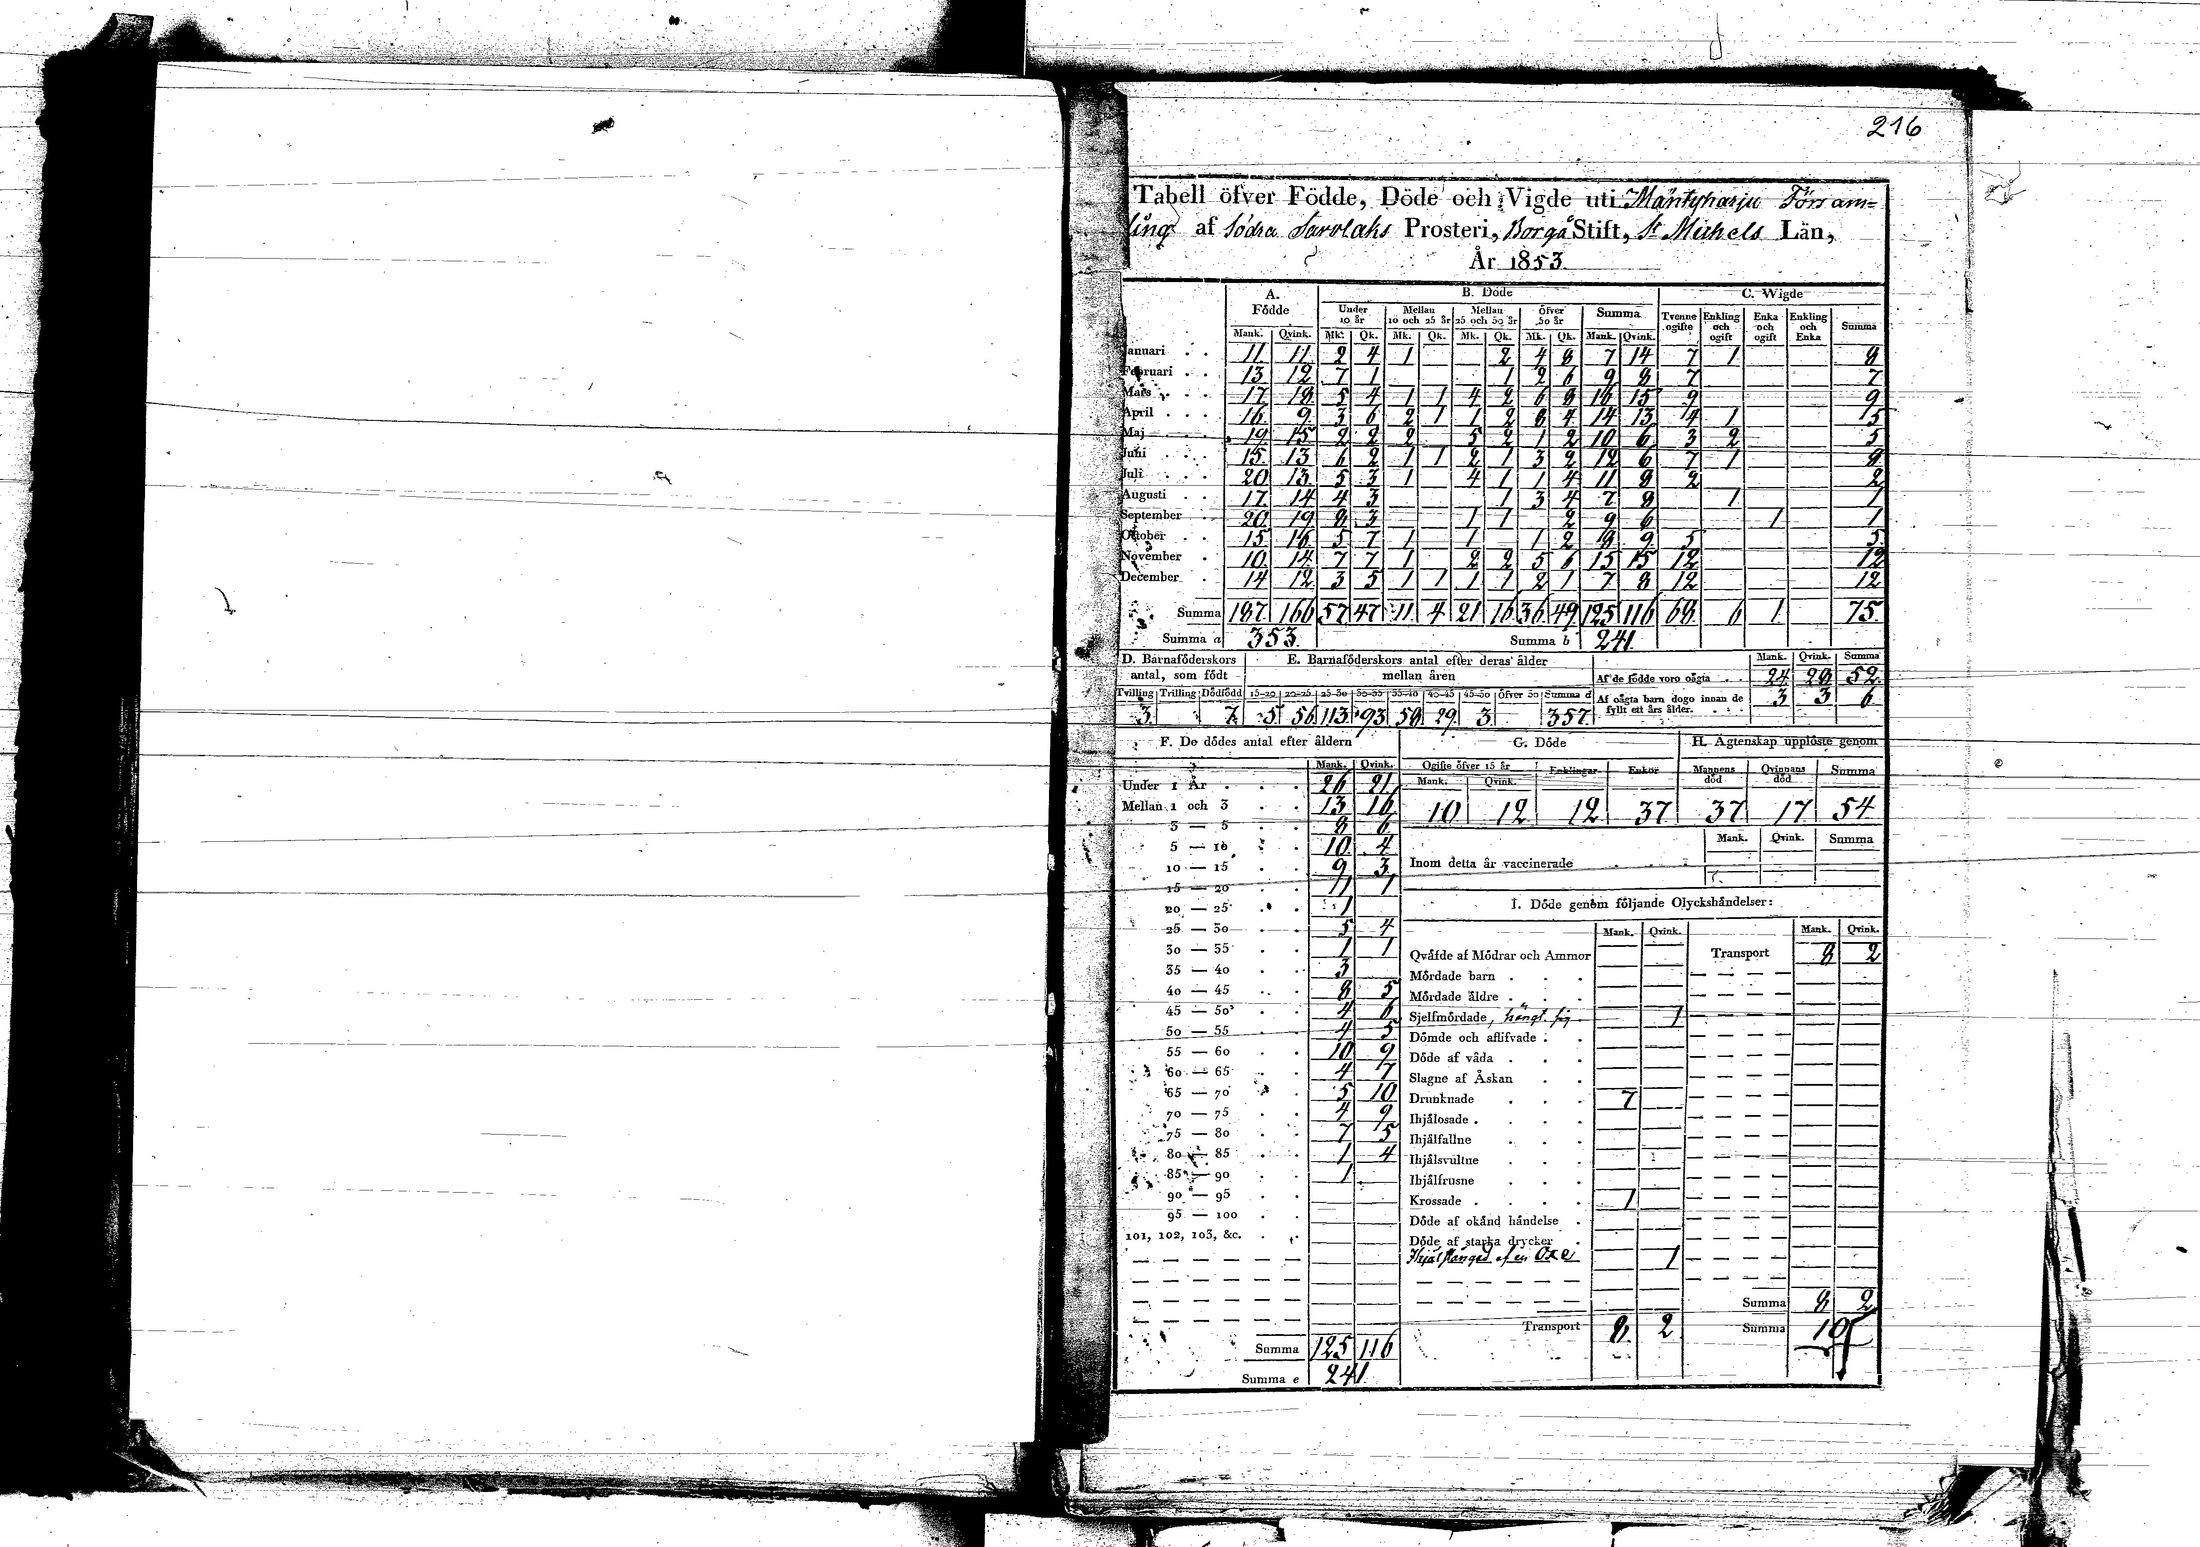 216
Tabell öfver Födde, Döde och Vigde uti Mäntyharju Församling
af Södra Savolaks Prosteri, Borgå Stift, St Michels Län,
År 1853.
A. Födde B. Döde C. Wigde
Under 10 år Mellan 10 och 25 år Mellan 25 och 50 år Öfver 50 år Summa Tvenne ogifte Enkling och ogift Enka och ogift Enkling och Enka Summa
Mank. Qvink. Mk. Qk. Mk. Qk. Mk. Qk. Mk. Qk. Mank. Qvink.
Januari 11 11 2 4 1 2 4 8 7 14 7 1 8
Februari 13 12 7 1 1 2 6 9 8 7 7
Mars 17 18 5 4 1 1 4 2 6 8 16 15 9 9
April 16 9 3 6 2 1 1 2 8 4 14 13 4 1 5
Maj 19 15 2 2 2 5 2 1 2 10 6 3 2 5
Juni 15 13 6 2 1 1 2 1 3 2 12 6 7 1 8
Juli 20 13 5 3 1 4 1 1 4 11 8 2 2
Augusti 17 14 4 3 1 3 4 7 8 1 1
September 20 19 8 3 1 1 2 9 6 1 1
Oktober 15 16 5 7 1 1 1 2 8 9 5 5
November 10 14 7 7 1 2 2 5 6 15 15 12 12
December 14 12 3 5 1 1 1 1 2 1 7 8 12 12
Summa 187 166 57 47 11 4 21 16 36 49 125 116 68 6 1 75
Summa a 353. Summa b 241.
D. Barnaföderskors antal, som födt
Tvilling Trilling Dödfödd
3 7
E. Barnaföderskors antal efter deras ålder mellan åren
15-20 20-25 25-30 30-35 35-40 40-45 45-50 Öfver 50 Summa d
5 56 113 93 58 29 3 357
Mank. Qvink. Summa
Af de födde voro oägta 24 28 52
Af oägta barn dogo innan de fyllt ett års ålder. 3 3 6
F. De dödes antal efter åldern
Mank. Qvink.
Under 1 År 26 21
Mellan 1 och 3 13 16
3 — 5 8 6
5 — 10 10 4
10 — 15 9 3
15 — 20 1 1
20 — 25 1
25 — 30 5 4
30 — 35 1 1
35 — 40 3
40 — 45 8 5
45 — 50 4 6
50 — 55 4 5
55 — 60 10 9
60 — 65 4 7
65 — 70 5 10
70 — 75 4 9
75 — 80 7 5
80 — 85 1 4
85 — 90 1
90 — 95
95 — 100
101, 102, 103, &c.
Summa 125 116
Summa e 241
G. Döde
Ogifte öfver 15 år Enklingar Enkor
Mank. Qvink.
10 12 12 37
H. Ägtenskap upplöste genom
Mannens död Qvinnans död Summa
37 17 54
Mank. Qvink. Summa
Inom detta år vaccinerade
I. Döde genom följande Olyckshändelser:
Mank. Qvink. Mank. Qvink.
Qväfde af Mödrar och Ammor Transport 8 2
Mördade barn
Mördade äldre
Sjelfmördade, hängt sig 1
Dömde och aflifvade
Döde af våda
Slagne af Åskan
Drunknade 7
Ihjälosade
Ihjälfallne
Ihjälsvultne
Ihjälfrusne
Krossade 1
Döde af okänd händelse
Döde af starka drycker
Ihjälstångad af en Oxe 1
Summa 8 2
Transport 8 2 Summa 10